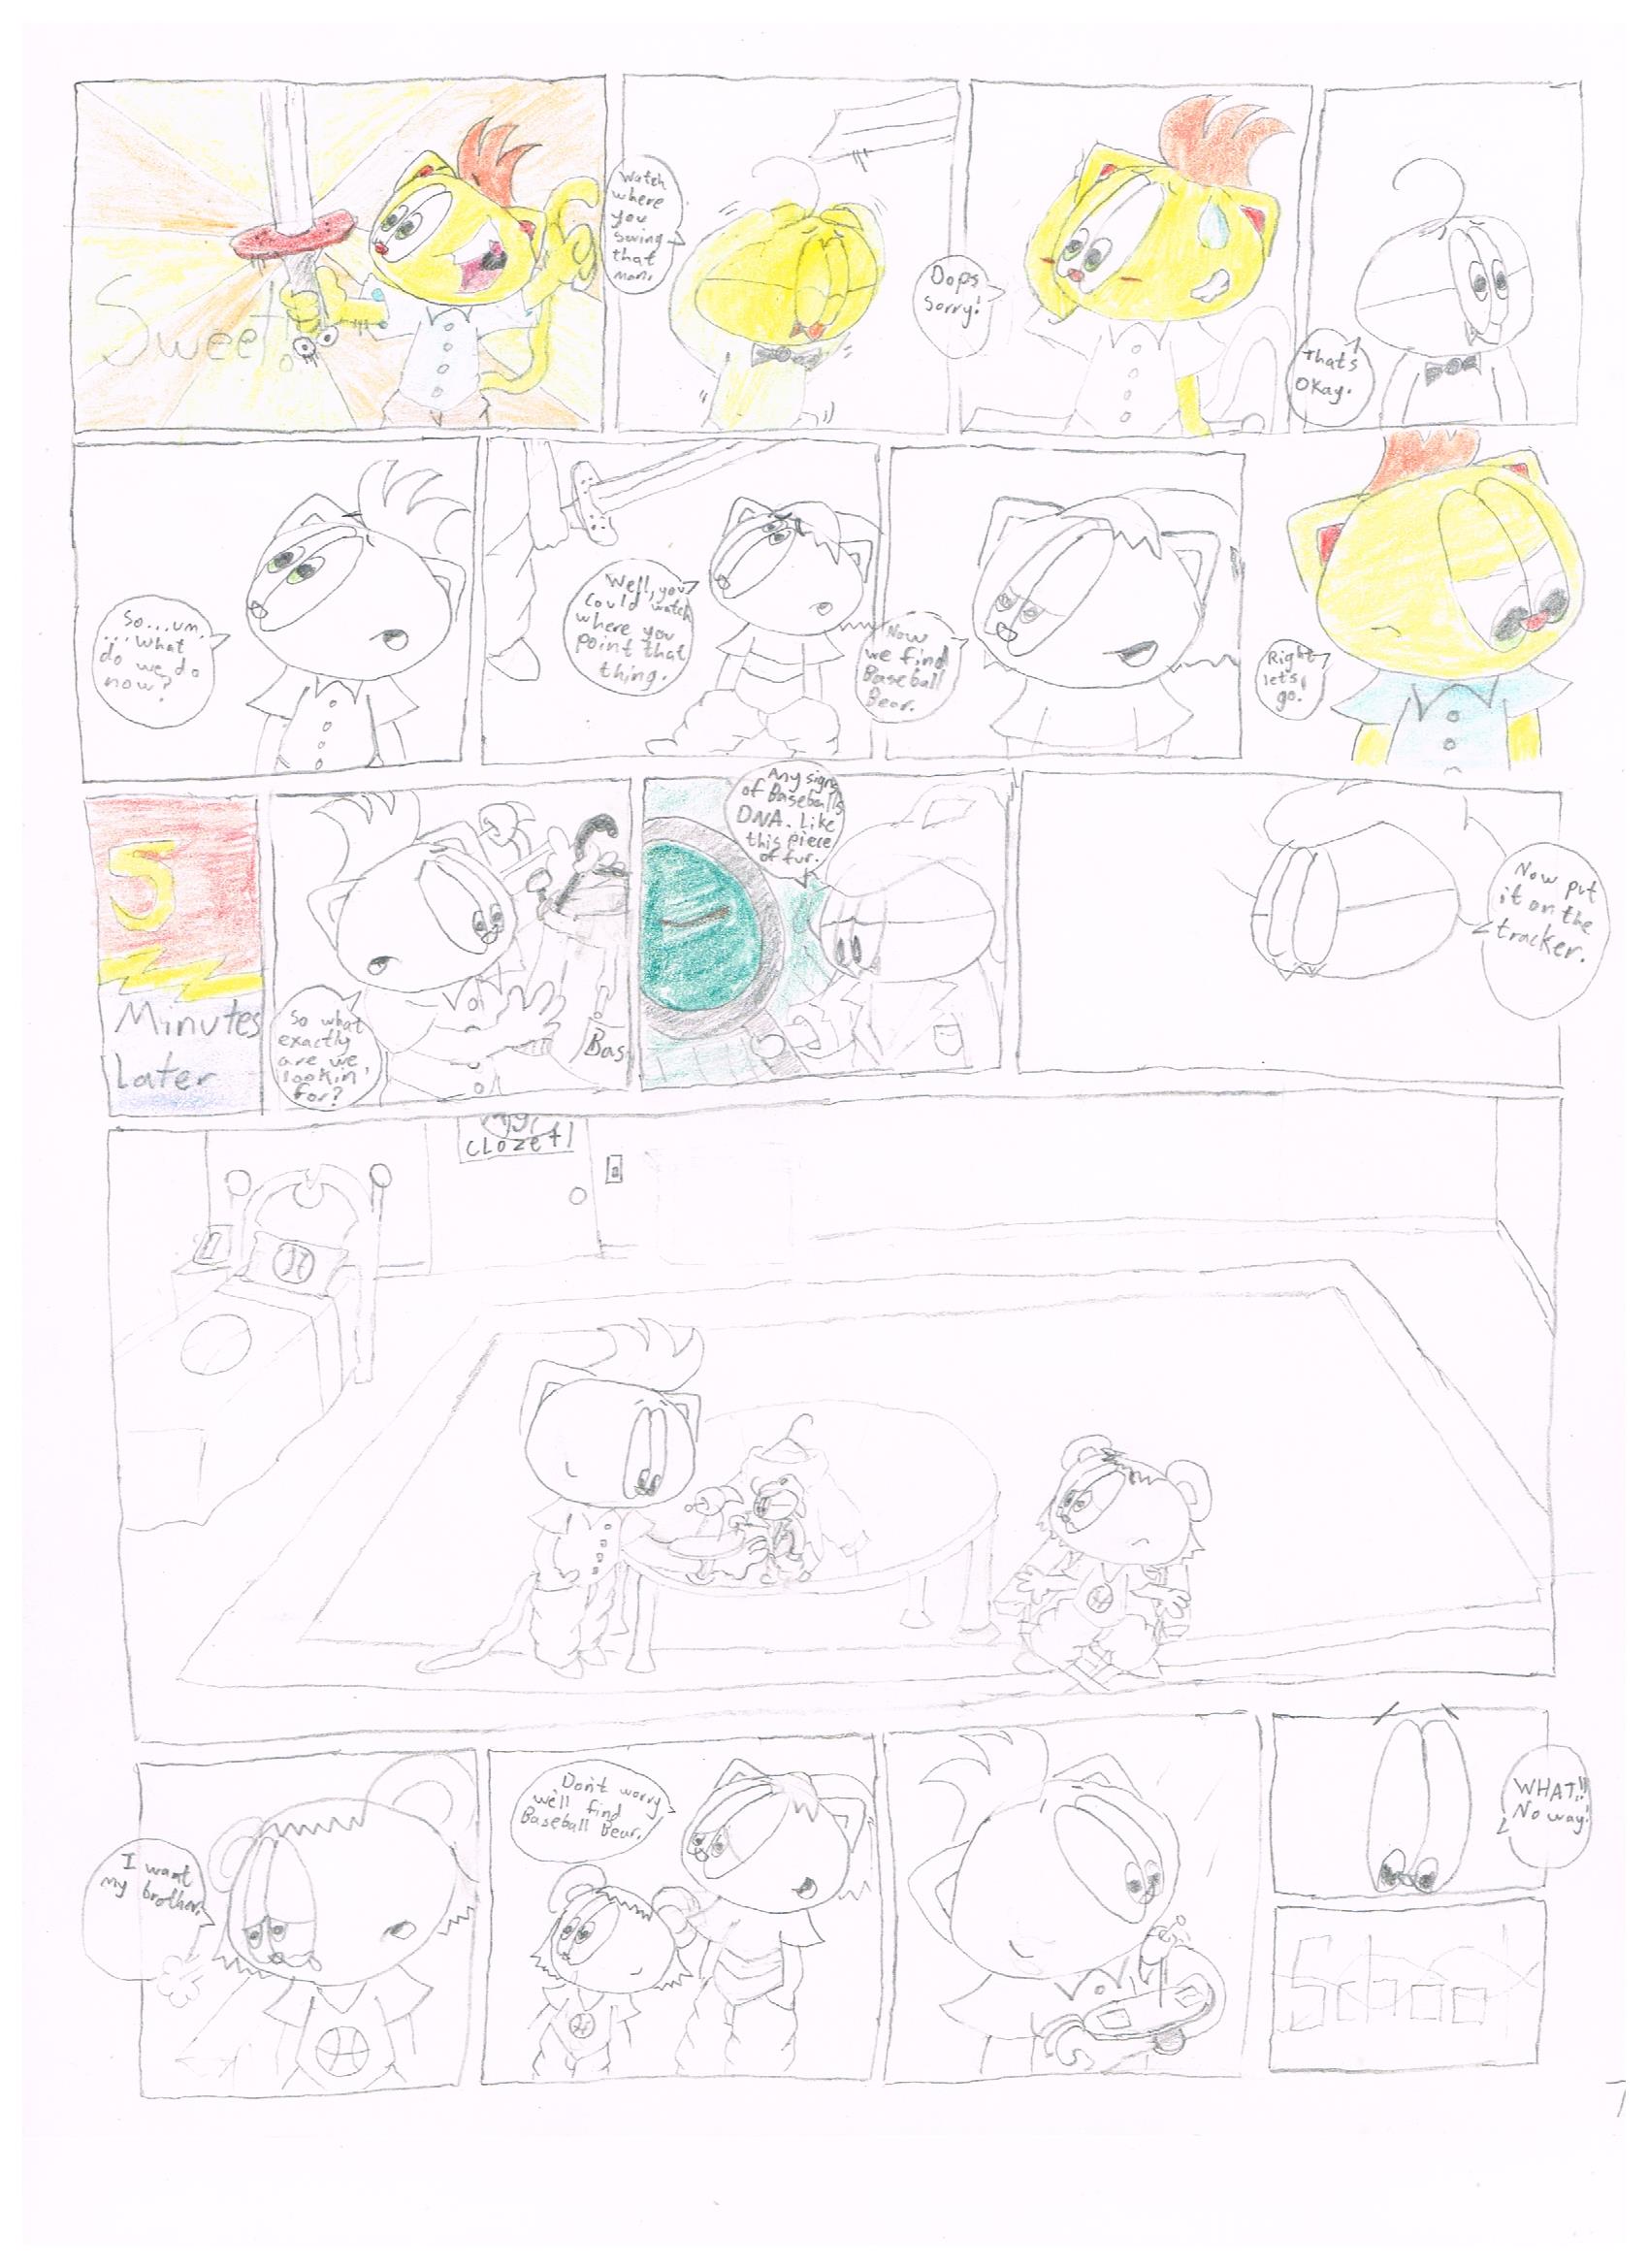 Sweet!
Watch
where
you
swing
that
man.
Oops
sorry!
Thats
Okay.
So...um
...What
do we do
now?
Well, you
could watch
where you
point that
thing.
Now
we find
Baseball
Bear.
Right
let's
go.
5
Minutes
Later
So what
exactly
are we
lookin'
for?
Bas
Any signs
of Baseballs
DNA. Like
this piece
of fur.
Now put
it on the
tracker.
CLOZET!
I want
my brother.
Don't worry
we'll find
Baseball Bear.
WHAT!!
No way!
School
7